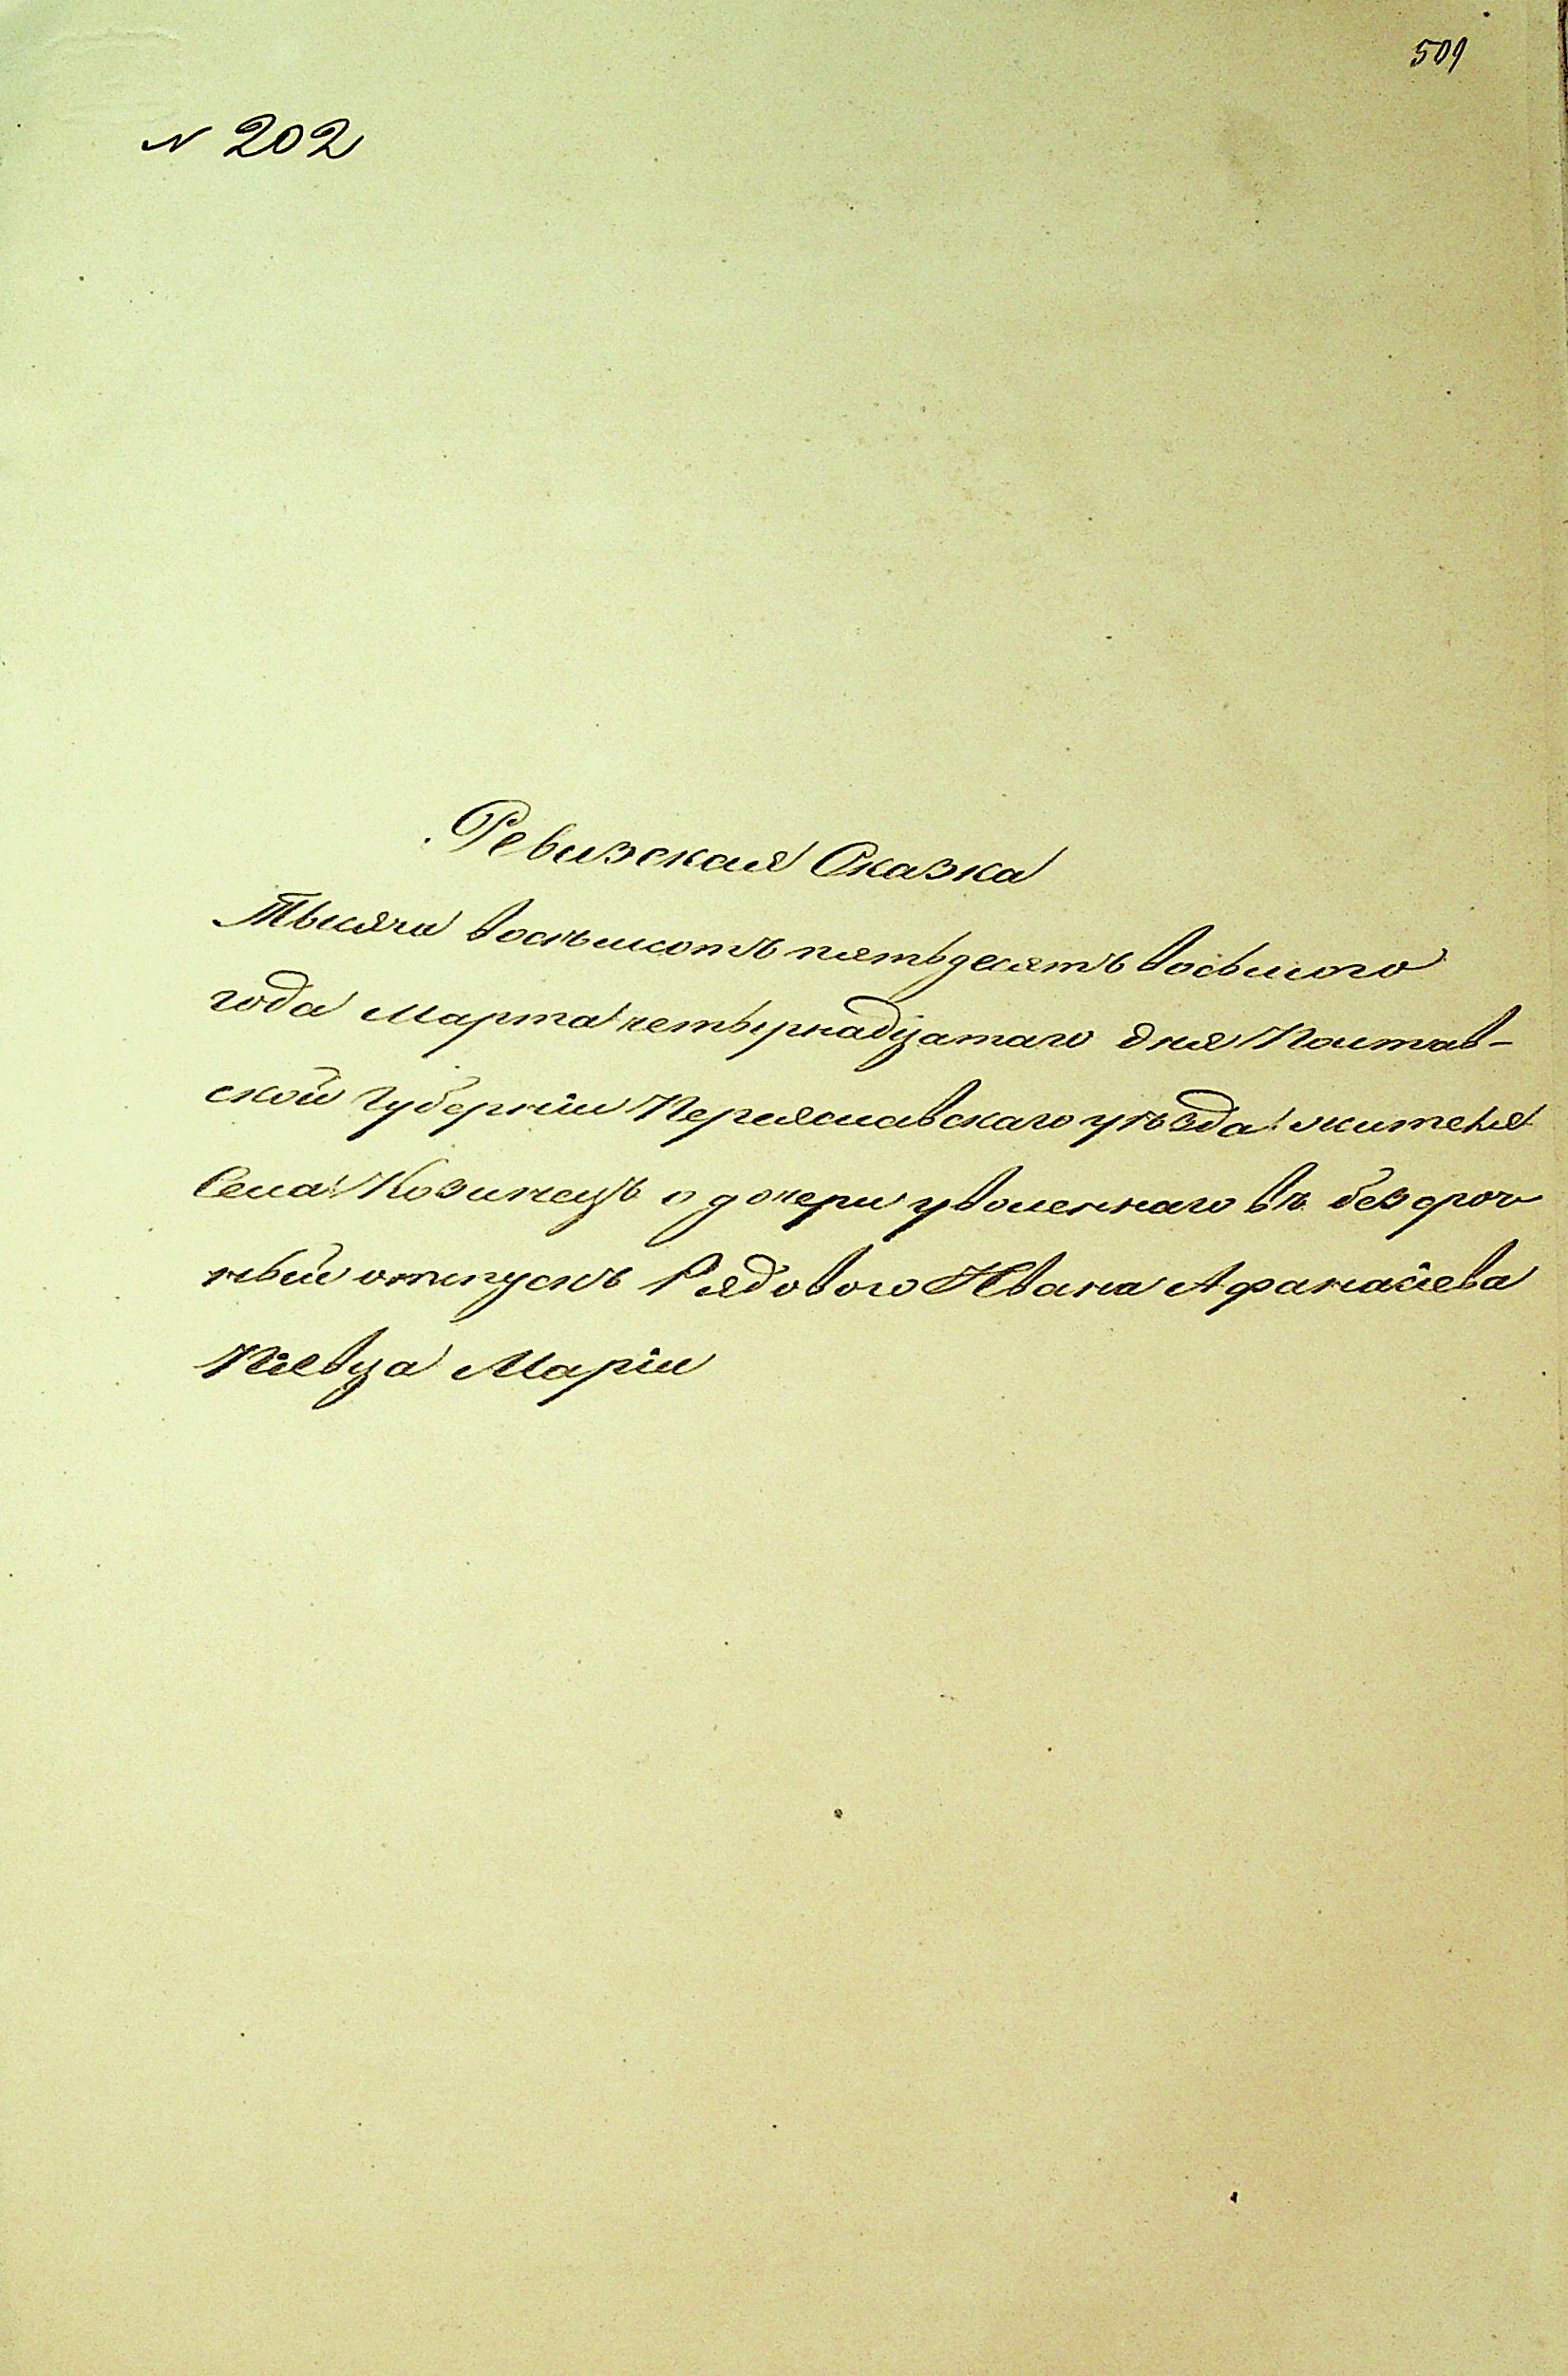 509
N 202
Ревизская Сказка
Тысяча восѣмсотъ пятьдесятъ восьмого
года Марта четырнадцатаго дня Полтав-
ской Губерніи Переяславскаго уѣзда жителя
Села Козинецъ о дочери уволеннаго въ безсроч
ный отпускъ Рядового Ивана Афанасіева
Півца Маріи